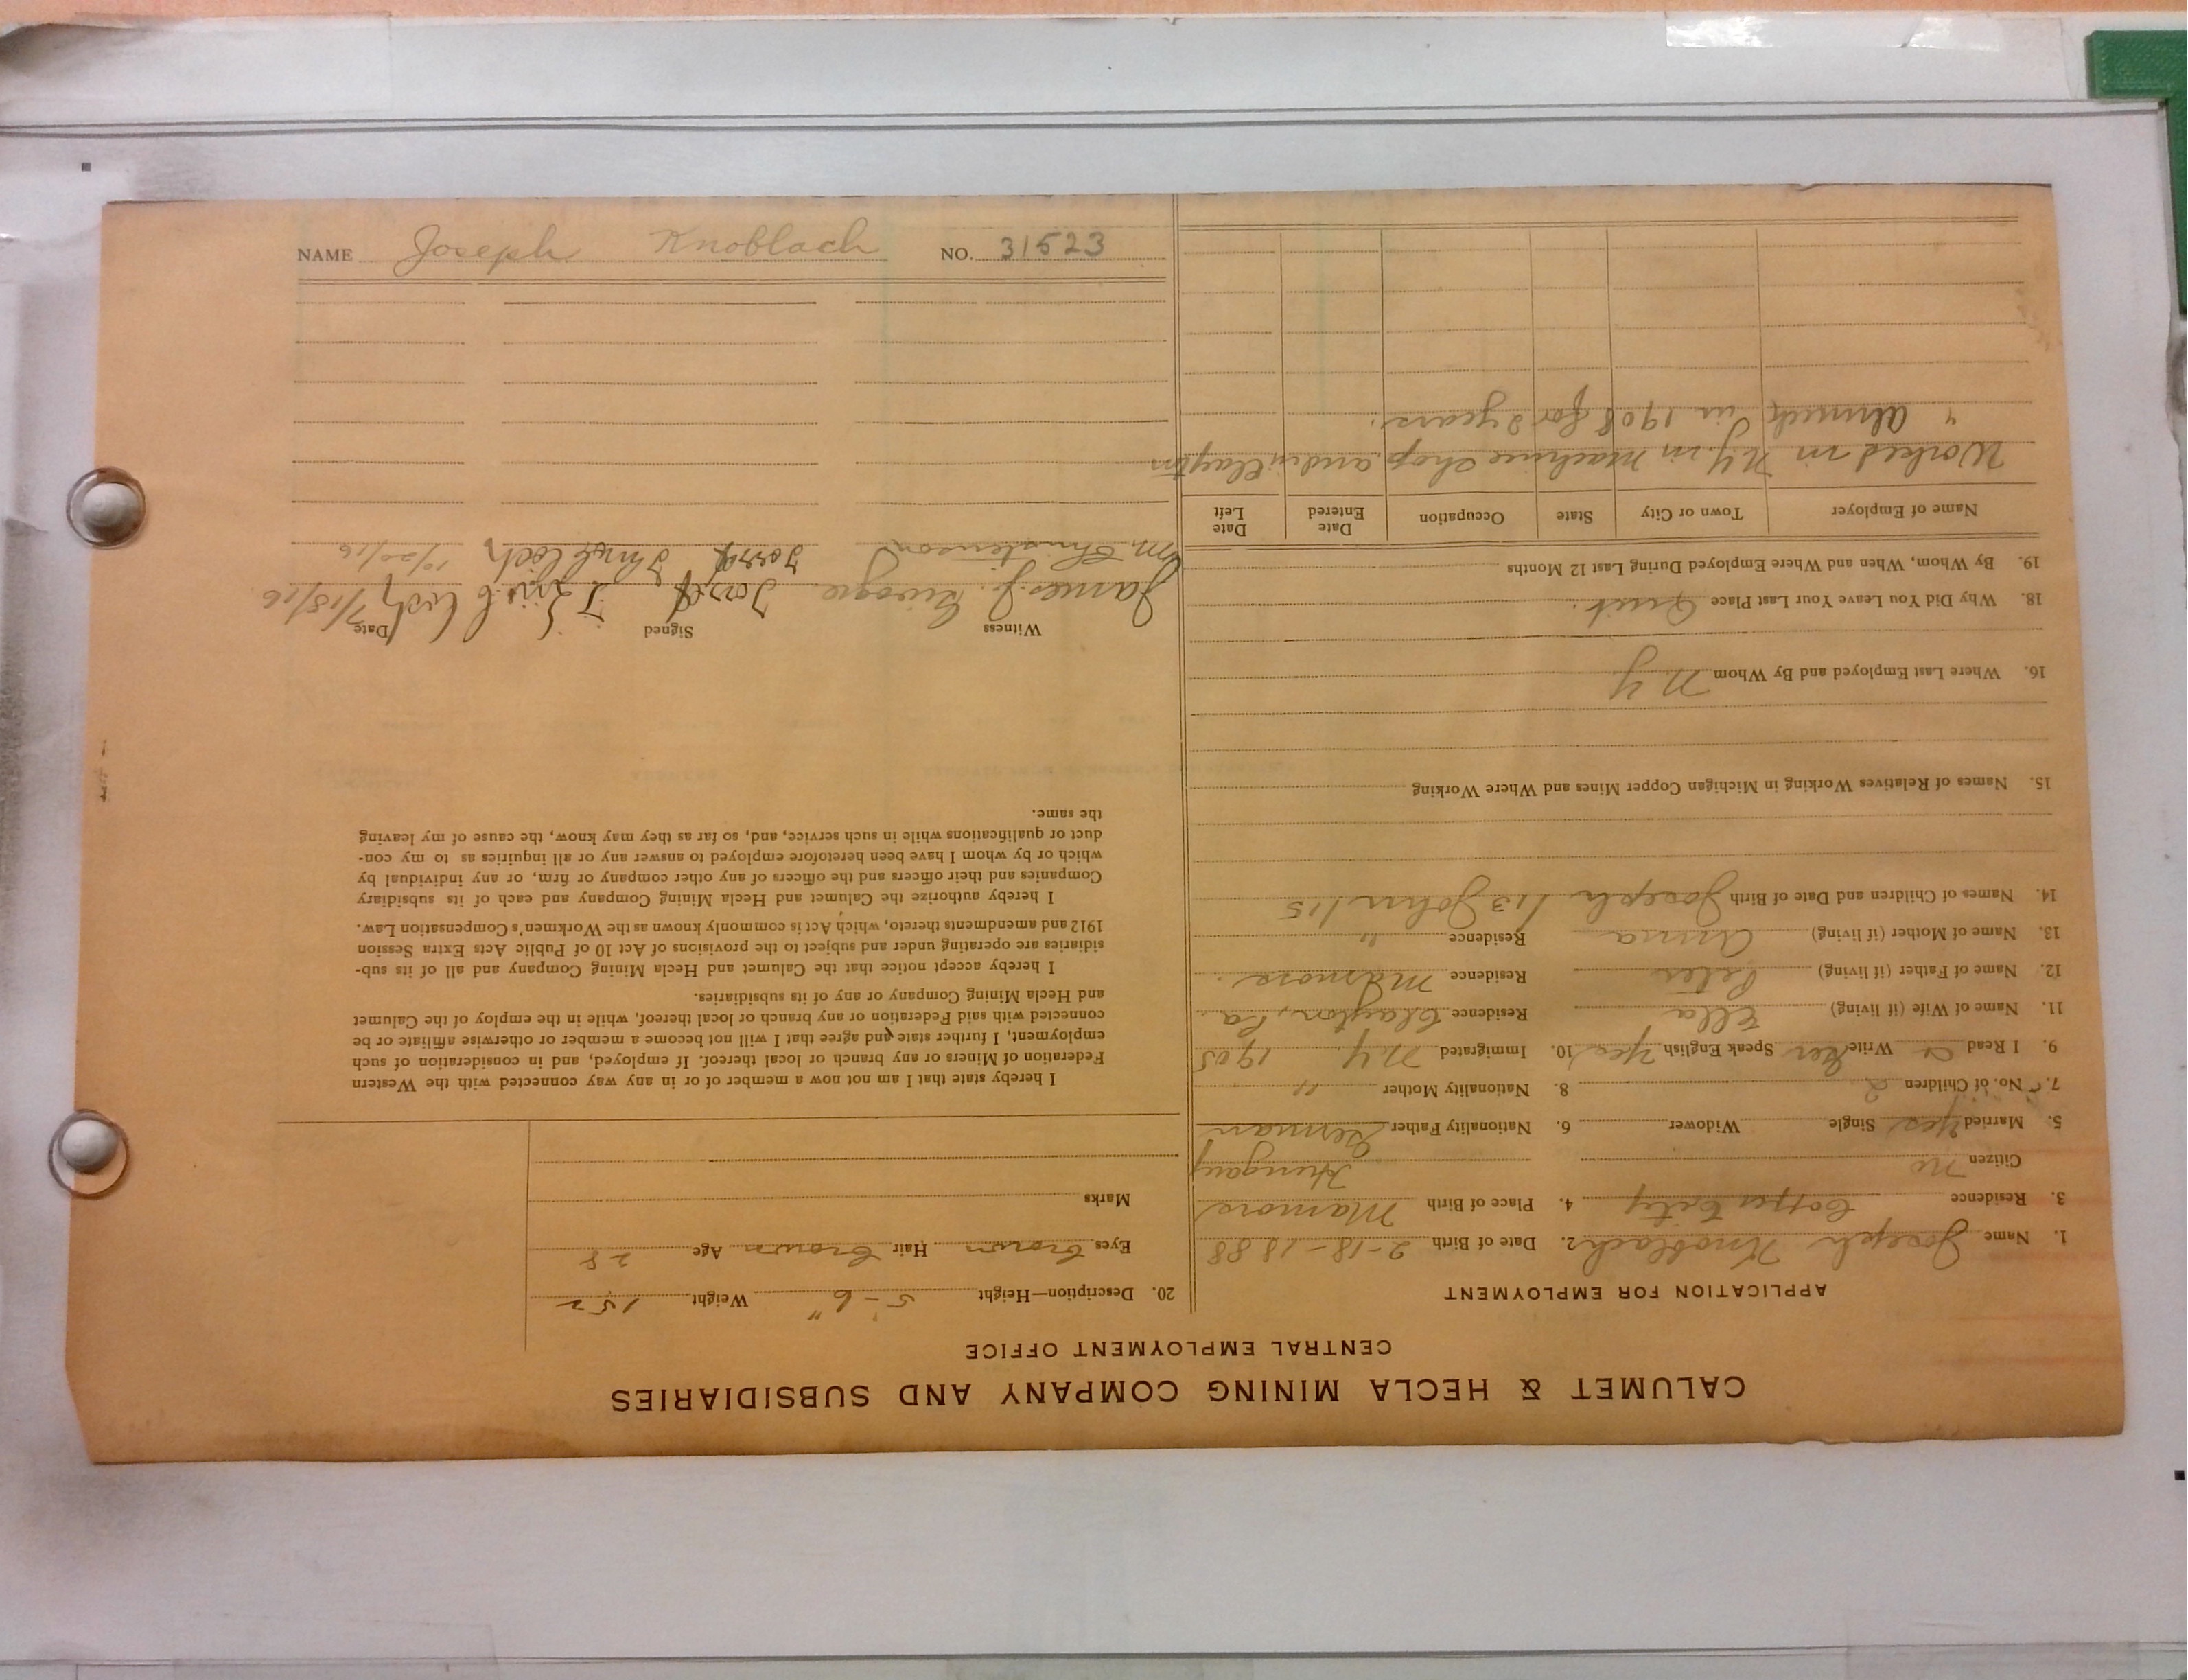 CALUMET & HECLA MINING COMPANY AND SUBSIDIARIES
CENTRAL EMPLOYMENT OFFICE
APPLICATION FOR EMPLOYMENT
1. Name Joseph Knoblach 2. Date of Birth 2-18-1888
3. Residence Copper City 4. Place of Birth Mamore
Citizen no Hungary
5. Married Yes Single Widower 6. Nationality Father German
7. No. of Children 2 8. Nationality Mother "
9. I Read Write Speak English Yes 10. Immigrated N.Y. 1905
11. Name of Wife (if living) Ella Residence Clayton, Pa
12. Name of Father (if living) Peter Residence Mamore.
13. Name of Mother (if living) Anna Residence "
14. Names of Children and Date of Birth Joseph /13 John /15
15. Names of Relatives Working in Michigan Copper Mines and Where Working
16. Where Last Employed and By Whom N Y
18. Why Did You Leave Your Last Place Quit.
19. By Whom, When and Where Employed During Last 12 Months
Name of Employer Town or City State Occupation Date Entered Date Left
Worked in N.Y. in machine shop and in Clayton
" Ahmeek in 1908 for 2 years.
20. Description—Height 5-6" Weight 152
Eyes brown Hair brown Age 28
Marks
I hereby state that I am not now a member of or in any way connected with the Western
Federation of Miners or any branch or local thereof. If employed, and in consideration of such
employment, I further state and agree that I will not become a member or otherwise affiliate or be
connected with said Federation or any branch or local thereof, while in the employ of the Calumet
and Hecla Mining Company or any of its subsidiaries.
I hereby accept notice that the Calumet and Hecla Mining Company and all of its sub-
sidiaries are operating under and subject to the provisions of Act 10 of Public Acts Extra Session
1912 and amendments thereto, which Act is commonly known as the Workmen's Compensation Law.
I hereby authorize the Calumet and Hecla Mining Company and each of its subsidiary
Companies and their officers and the officers of any other company or firm, or any individual by
which or by whom I have been heretofore employed to answer any or all inquiries as to my con-
duct or qualifications while in such service, and, so far as they may know, the cause of my leaving
the same.
Witness Signed Date
James J. 7/18/16
M. Christenson 10/20/16
NAME Joseph Knoblach NO. 31523